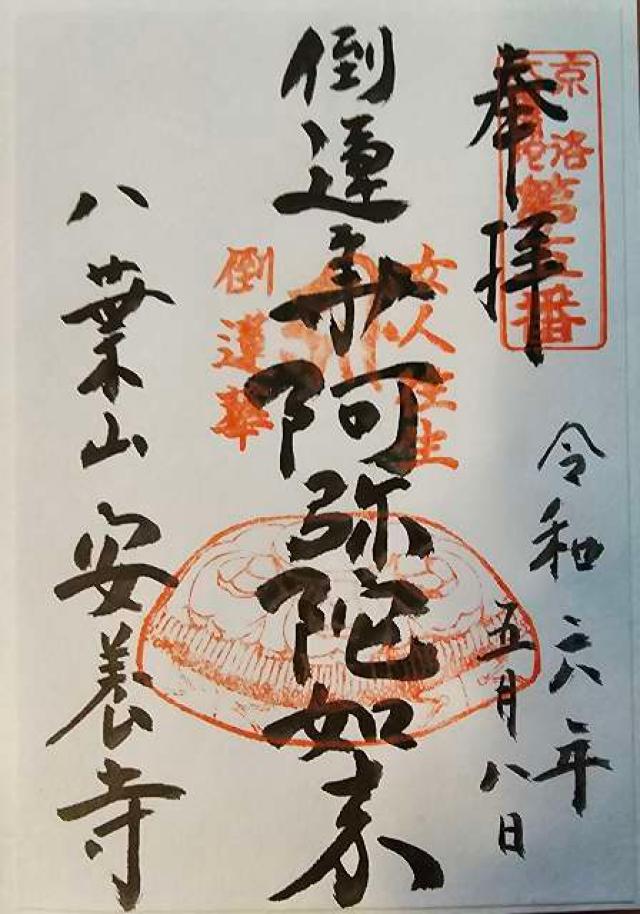 奉拝
京洛
六阿弥陀
第五番
令和六年
五月八日
倒蓮華阿弥陀如来
女人往生
倒蓮華
八葉山安養寺